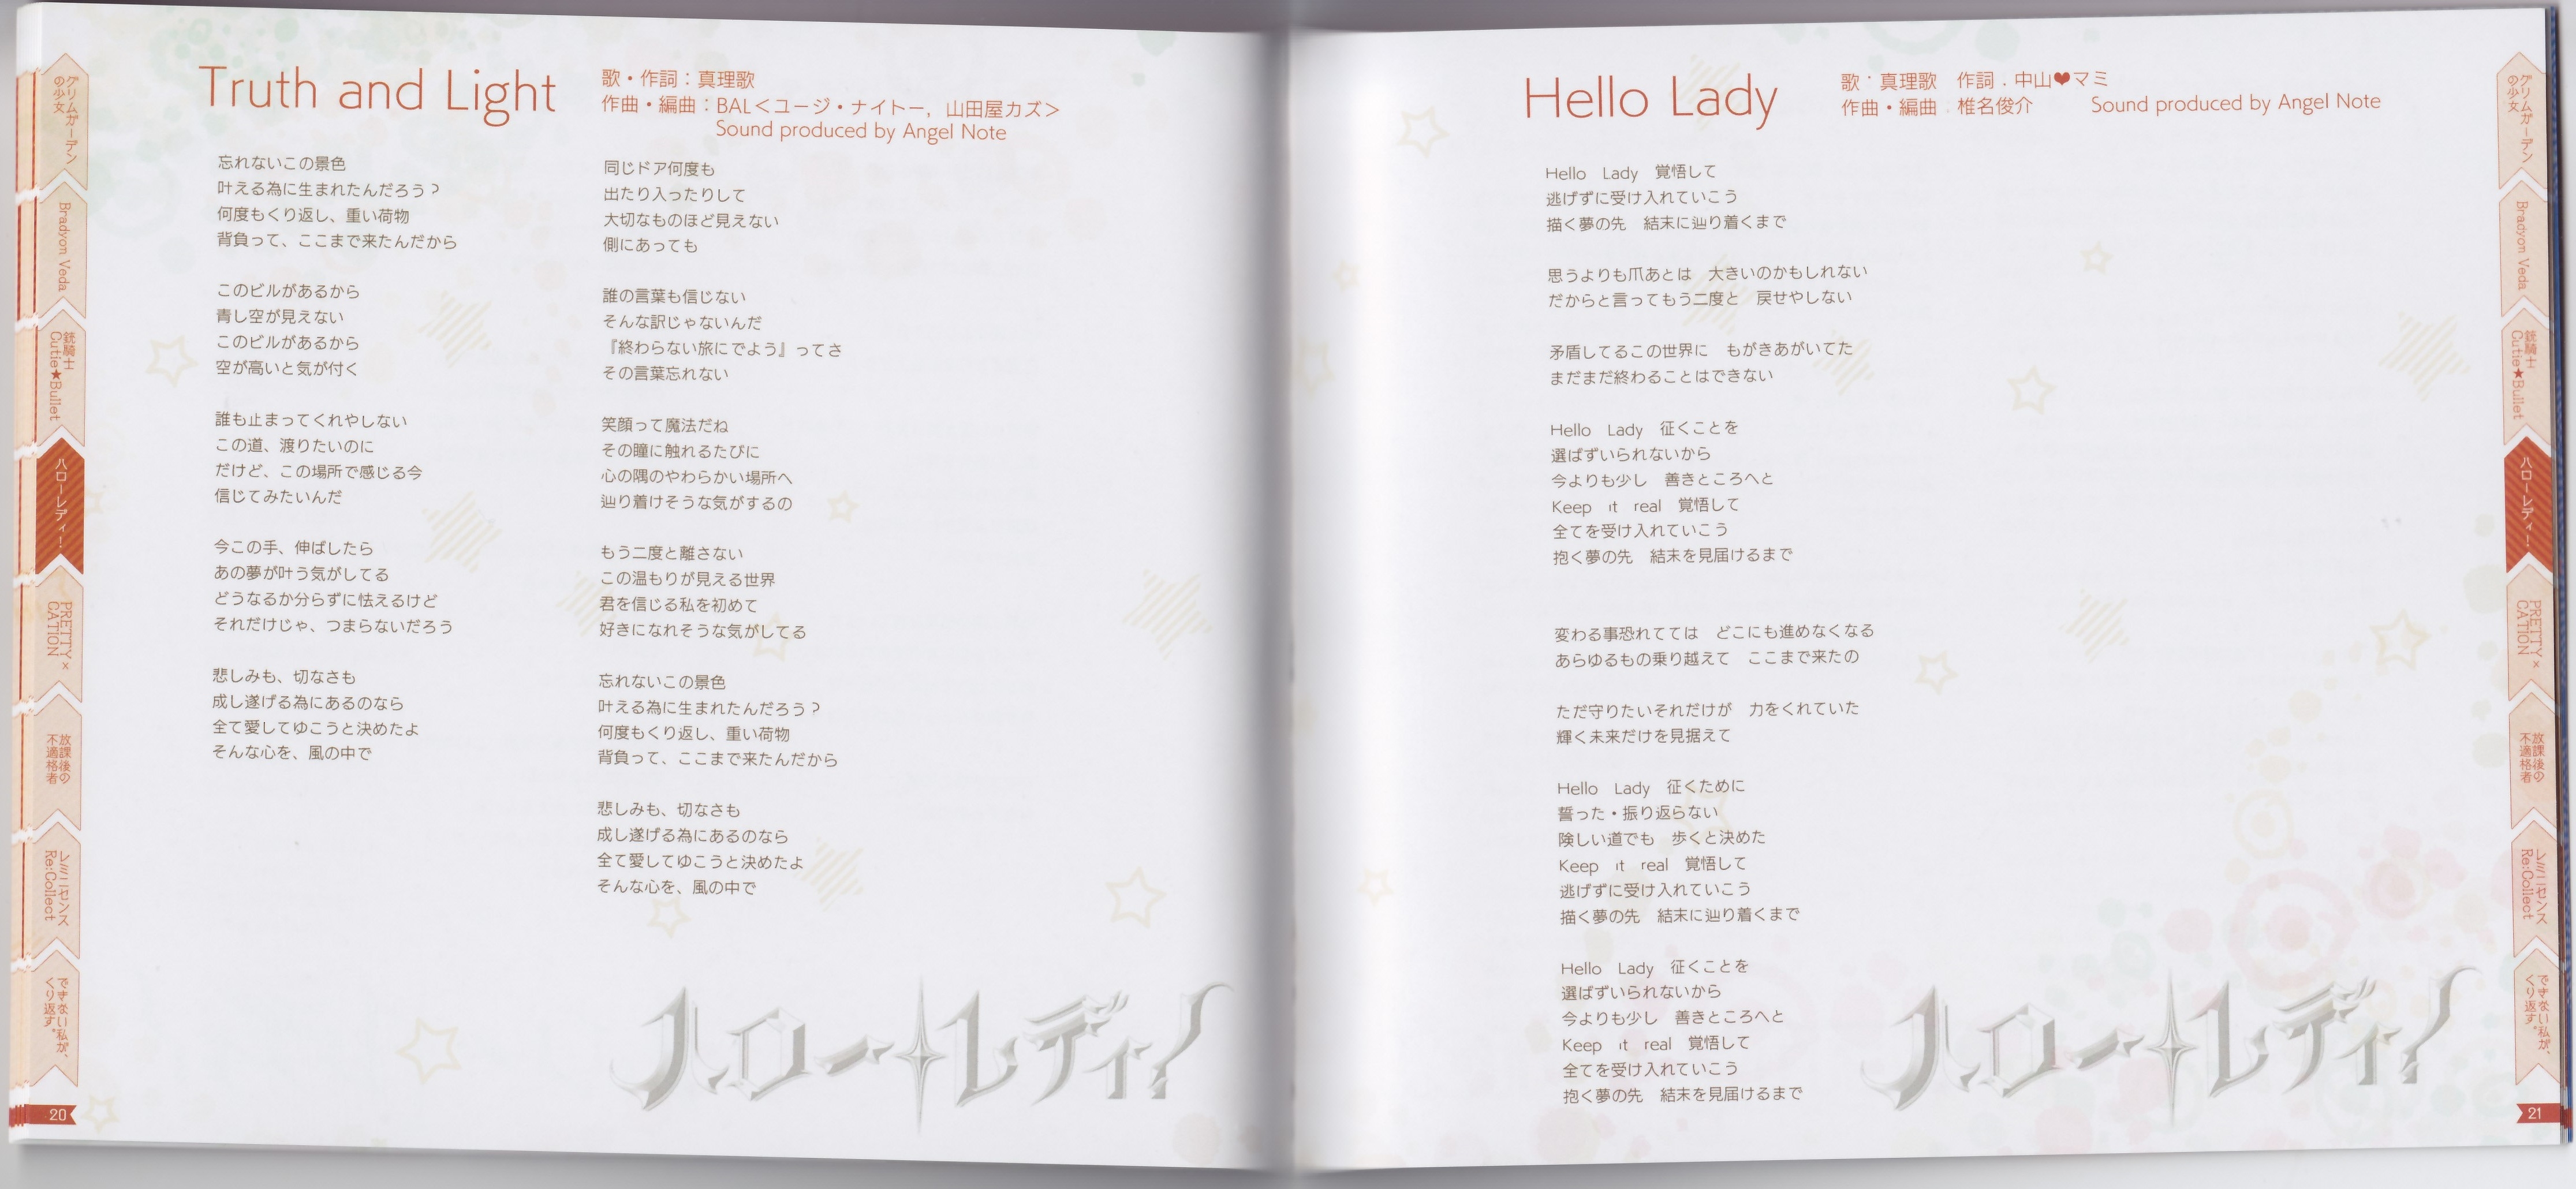 Truth and Light
歌・作詞：真理歌
作曲・編曲：BAL＜ユージ・ナイトー，山田屋カズ＞
Sound produced by Angel Note
忘れないこの景色
叶える為に生まれたんだろう？
何度もくり返し、重い荷物
背負って、ここまで来たんだから
このビルがあるから
青し空が見えない
このビルがあるから
空が高いと気が付く
誰も止まってくれやしない
この道、渡りたいのに
だけど、この場所で感じる今
信じてみたいんだ
今この手、伸ばしたら
あの夢が叶う気がしてる
どうなるか分らずに怯えるけど
それだけじゃ、つまらないだろう
悲しみも、切なさも
成し遂げる為にあるのなら
全て愛してゆこうと決めたよ
そんな心を、風の中で
同じドア何度も
出たり入ったりして
大切なものほど見えない
側にあっても
誰の言葉も信じない
そんな訳じゃないんだ
『終わらない旅にでよう』ってさ
その言葉忘れない
笑顔って魔法だね
その瞳に触れるたびに
心の隅のやわらかい場所へ
辿り着けそうな気がするの
もう二度と離さない
この温もりが見える世界
君を信じる私を初めて
好きになれそうな気がしてる
忘れないこの景色
叶える為に生まれたんだろう？
何度もくり返し、重い荷物
背負って、ここまで来たんだから
悲しみも、切なさも
成し遂げる為にあるのなら
全て愛してゆこうと決めたよ
そんな心を、風の中で
ハローレディ！
グリムガーデンの少女
Bradyon Veda
銃騎士 Cutie★Bullet
ハローレディ！
PRETTY×CATION
放課後の不適格者
レミニセンス Re:Collect
できない私が、くり返す。
20
Hello Lady
歌：真理歌　作詞：中山❤マミ
作曲・編曲：椎名俊介　Sound produced by Angel Note
Hello　Lady　覚悟して
逃げずに受け入れていこう
描く夢の先　結末に辿り着くまで
思うよりも爪あとは　大きいのかもしれない
だからと言ってもう二度と　戻せやしない
矛盾してるこの世界に　もがきあがいてた
まだまだ終わることはできない
Hello　Lady　征くことを
選ばずいられないから
今よりも少し　善きところへと
Keep　it　real　覚悟して
全てを受け入れていこう
抱く夢の先　結末を見届けるまで
変わる事恐れてては　どこにも進めなくなる
あらゆるもの乗り越えて　ここまで来たの
ただ守りたいそれだけが　力をくれていた
輝く未来だけを見据えて
Hello　Lady　征くために
誓った・振り返らない
険しい道でも　歩くと決めた
Keep　it　real　覚悟して
逃げずに受け入れていこう
描く夢の先　結末に辿り着くまで
Hello　Lady　征くことを
選ばずいられないから
今よりも少し　善きところへと
Keep　it　real　覚悟して
全てを受け入れていこう
抱く夢の先　結末を見届けるまで
ハローレディ！
グリムガーデンの少女
Bradyon Veda
銃騎士 Cutie★Bullet
ハローレディ！
PRETTY×CATION
放課後の不適格者
レミニセンス Re:Collect
できない私が、くり返す。
21